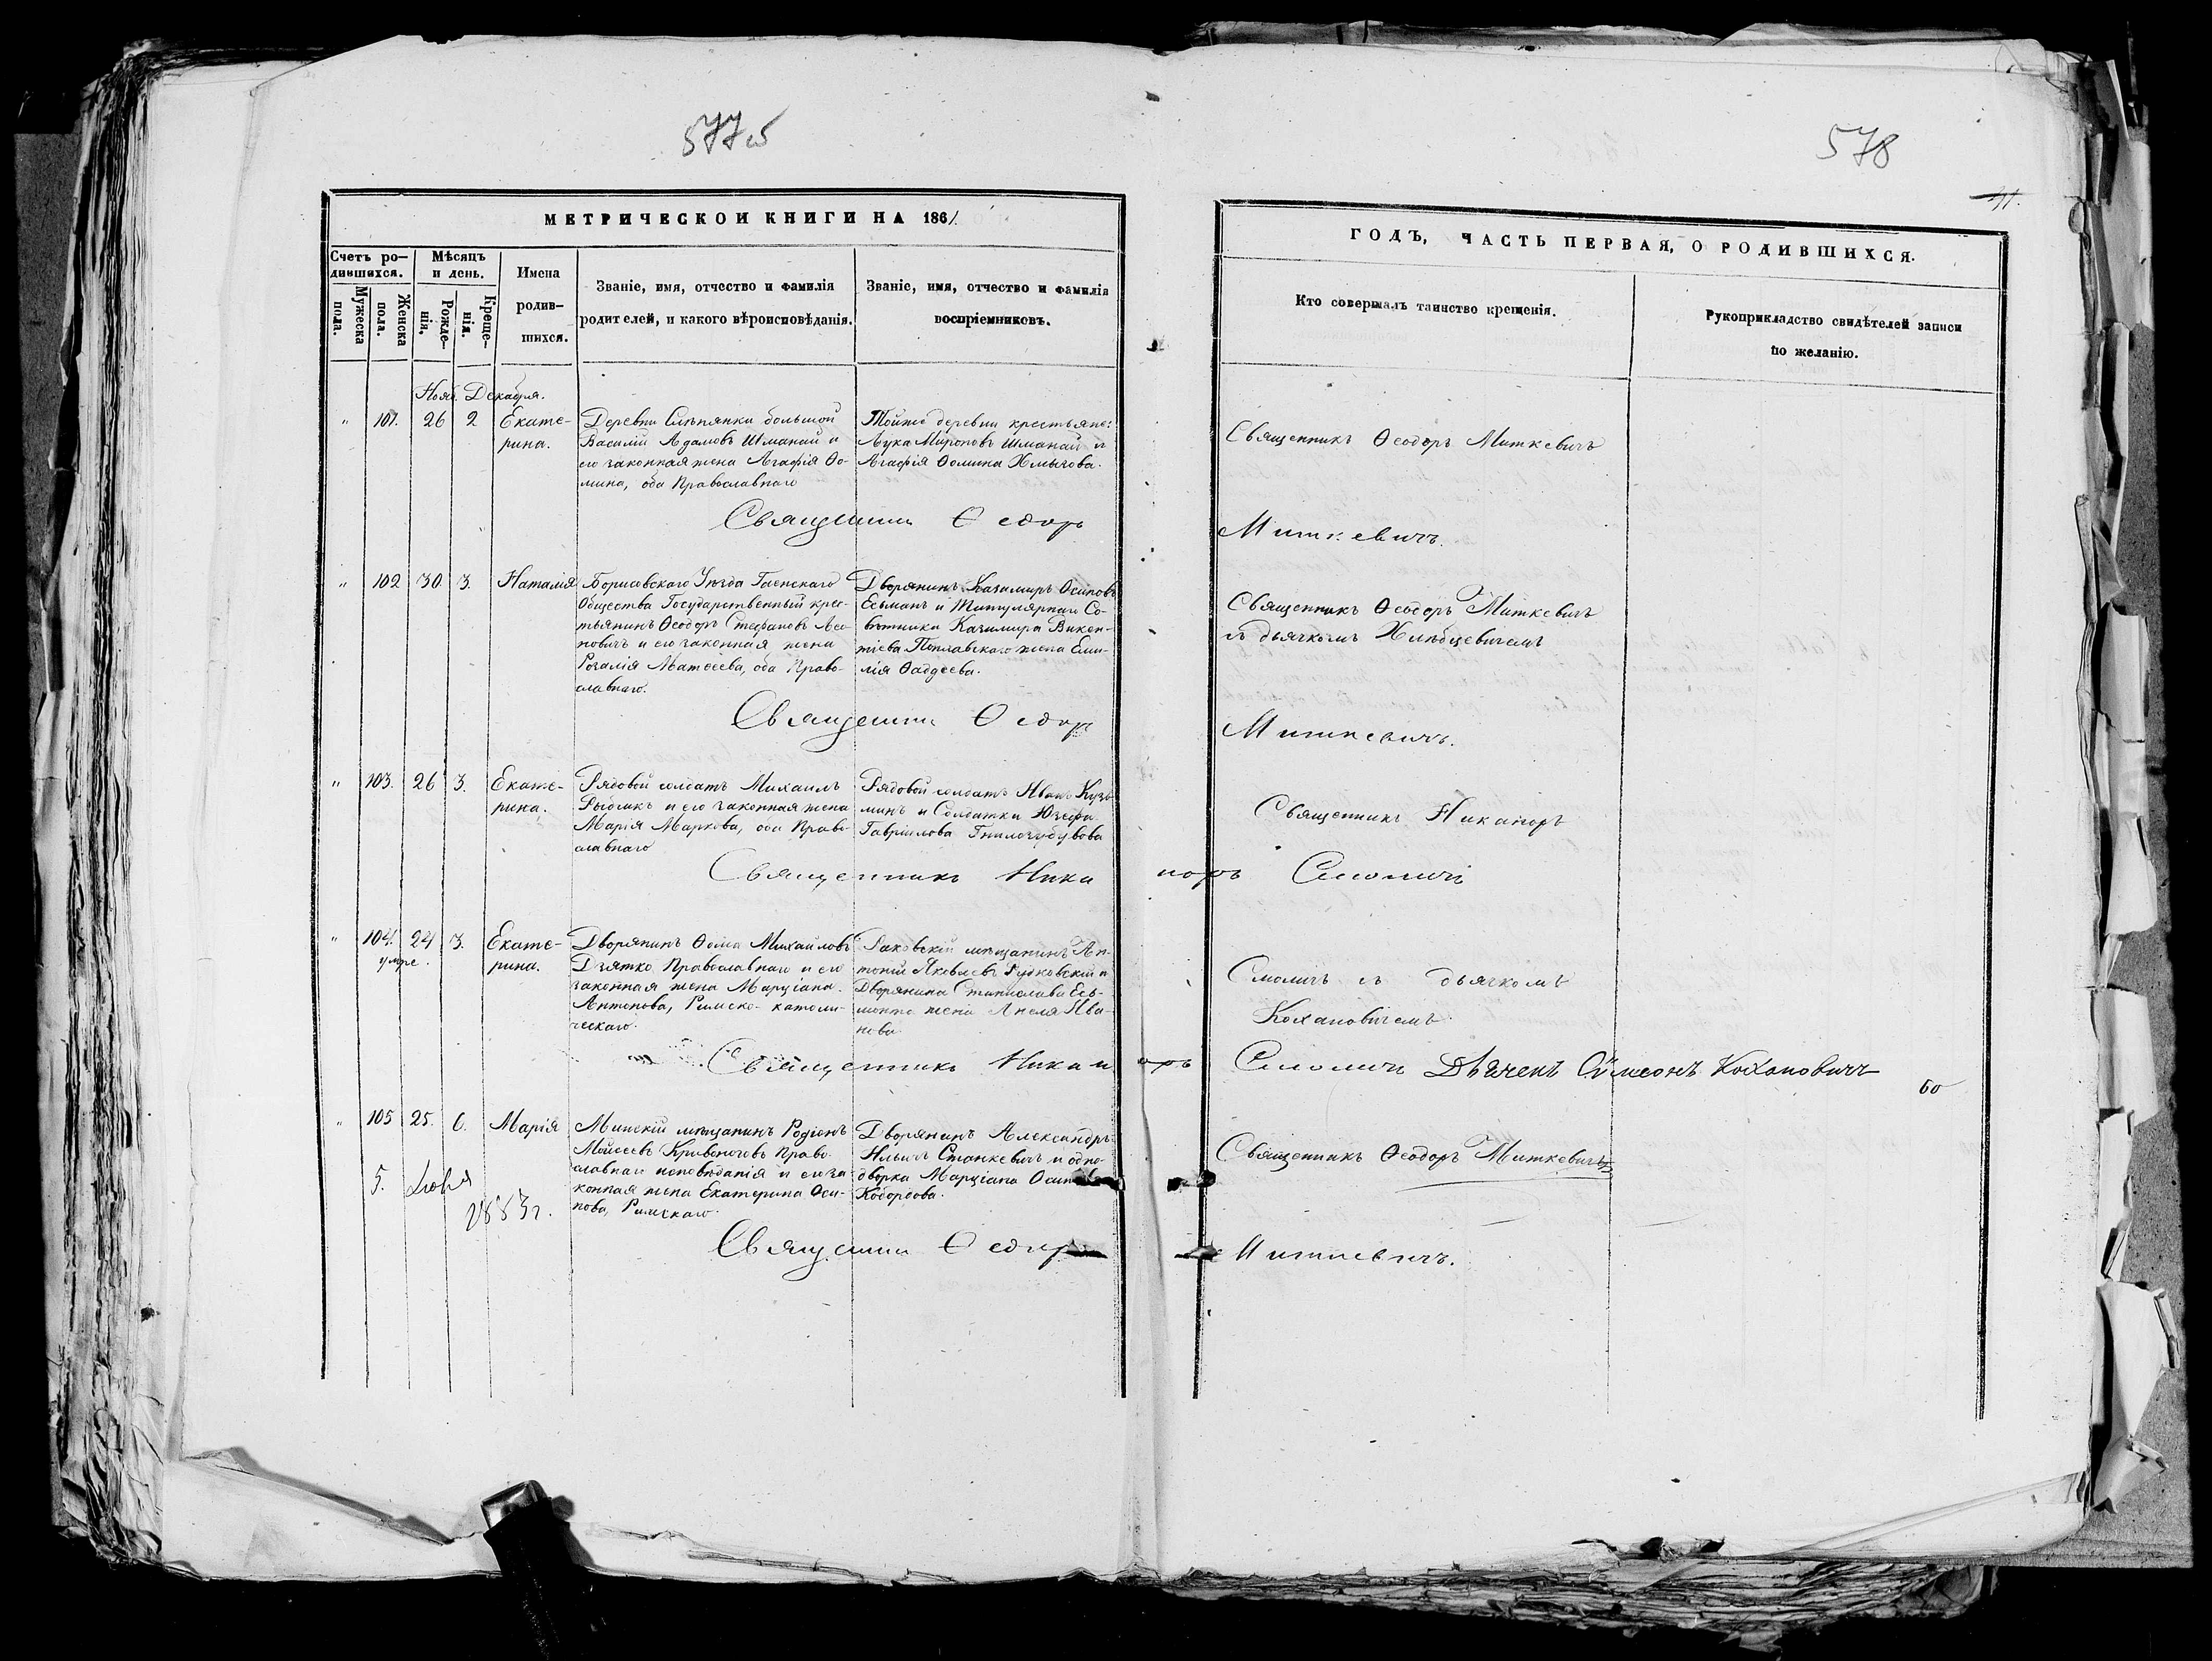 577 об
578
41.
МЕТРИЧЕСКОЙ КНИГИ НА 1861
ГОДЪ, ЧАСТЬ ПЕРВАЯ, О РОДИВШИХСЯ.
Счетъ ро-
дившихся.
Мужеска
пола.
Женска
пола.
Мѣсяцъ
и день.
Рожде-
нія.
Креще-
нія.
Имена
родив-
шихся.
Званіе, имя, отчество и фамилія
родителей, и какого вѣроисповѣданія.
Званіе, имя, отчество и фамилія
воспріемниковъ.
Кто совершалъ таинство крещенія.
Рукоприкладство свидѣтелей записи
по желанію.
Нояб. Декабря.
" 101. 26 2 Екате-
рина.
Деревни Слѣпянки большой
Василій Адамовъ Шманай и
его законная жена Агафія Ѳо-
мина, оба Православнаго
Тойже деревни крестьяне:
Лука Мироновъ Шманай и
Агафія Ѳомина Хмызова.
Священникъ Ѳеодоръ Миткевичъ
Священникъ Ѳедоръ Миткевичъ.
" 102 30 3. Наталія
Борисовскаго Уѣзда Гаенскаго
Общества Государственный крес-
тьянинъ Ѳеодоръ Стефановъ
и его законная жена
Розалія Матѳеева, оба Право-
славнаго.
Дворянинъ Казимиръ Осиповъ
Есьманъ и Титулярнаго Со-
вѣтника Казимира Викен-
тіева Поплавскаго жена Еми-
лія Ѳаддеева.
Священникъ Ѳеодоръ Миткевичъ
съ дьячкомъ Хлѣбцевичемъ
Священникъ Ѳедоръ Миткевичъ.
" 103. 26 3. Екате-
рина.
Рядовой солдатъ Михаилъ
Рыбакъ и его законная жена
Марія Маркова, оба Право-
славнаго
Рядовой солдатъ Иванъ Кузь-
минъ и Солдатка Юзефа
Гавріилова
Священникъ Никаноръ
Священникъ Никаноръ Смоличъ
" 104. 24 3. Екате-
рина.
умре.
Дворянинъ Ѳома Михайловъ
Дзятко Православнаго и его
законная жена Марціана
Антонова, Римско-католи-
ческаго.
Раковскій мѣщанинъ Ан-
тоній Яковлевъ Рудковскій и
Дворянина Станислава Есь-
монта жена Анеля Ива-
нова
Смоличъ съ дьячкомъ
Кохановичемъ.
Священникъ Никаноръ Смоличъ Дьячекъ Сѵмеонъ Кохановичъ
" 105 25. 6. Марія
Минскій мѣщанинъ Родіонъ
Моисеевъ Кривоноговъ Право-
славнаго исповѣданія и его за-
конная жена Екатерина Оси-
пова, Римскаго.
Дворянинъ Александръ
Ильичъ Станкевичъ и одно-
дворка Марціана Осипова
Священникъ Ѳеодоръ Миткевичъ
5.
1883 г.
Священникъ Ѳедоръ Миткевичъ.